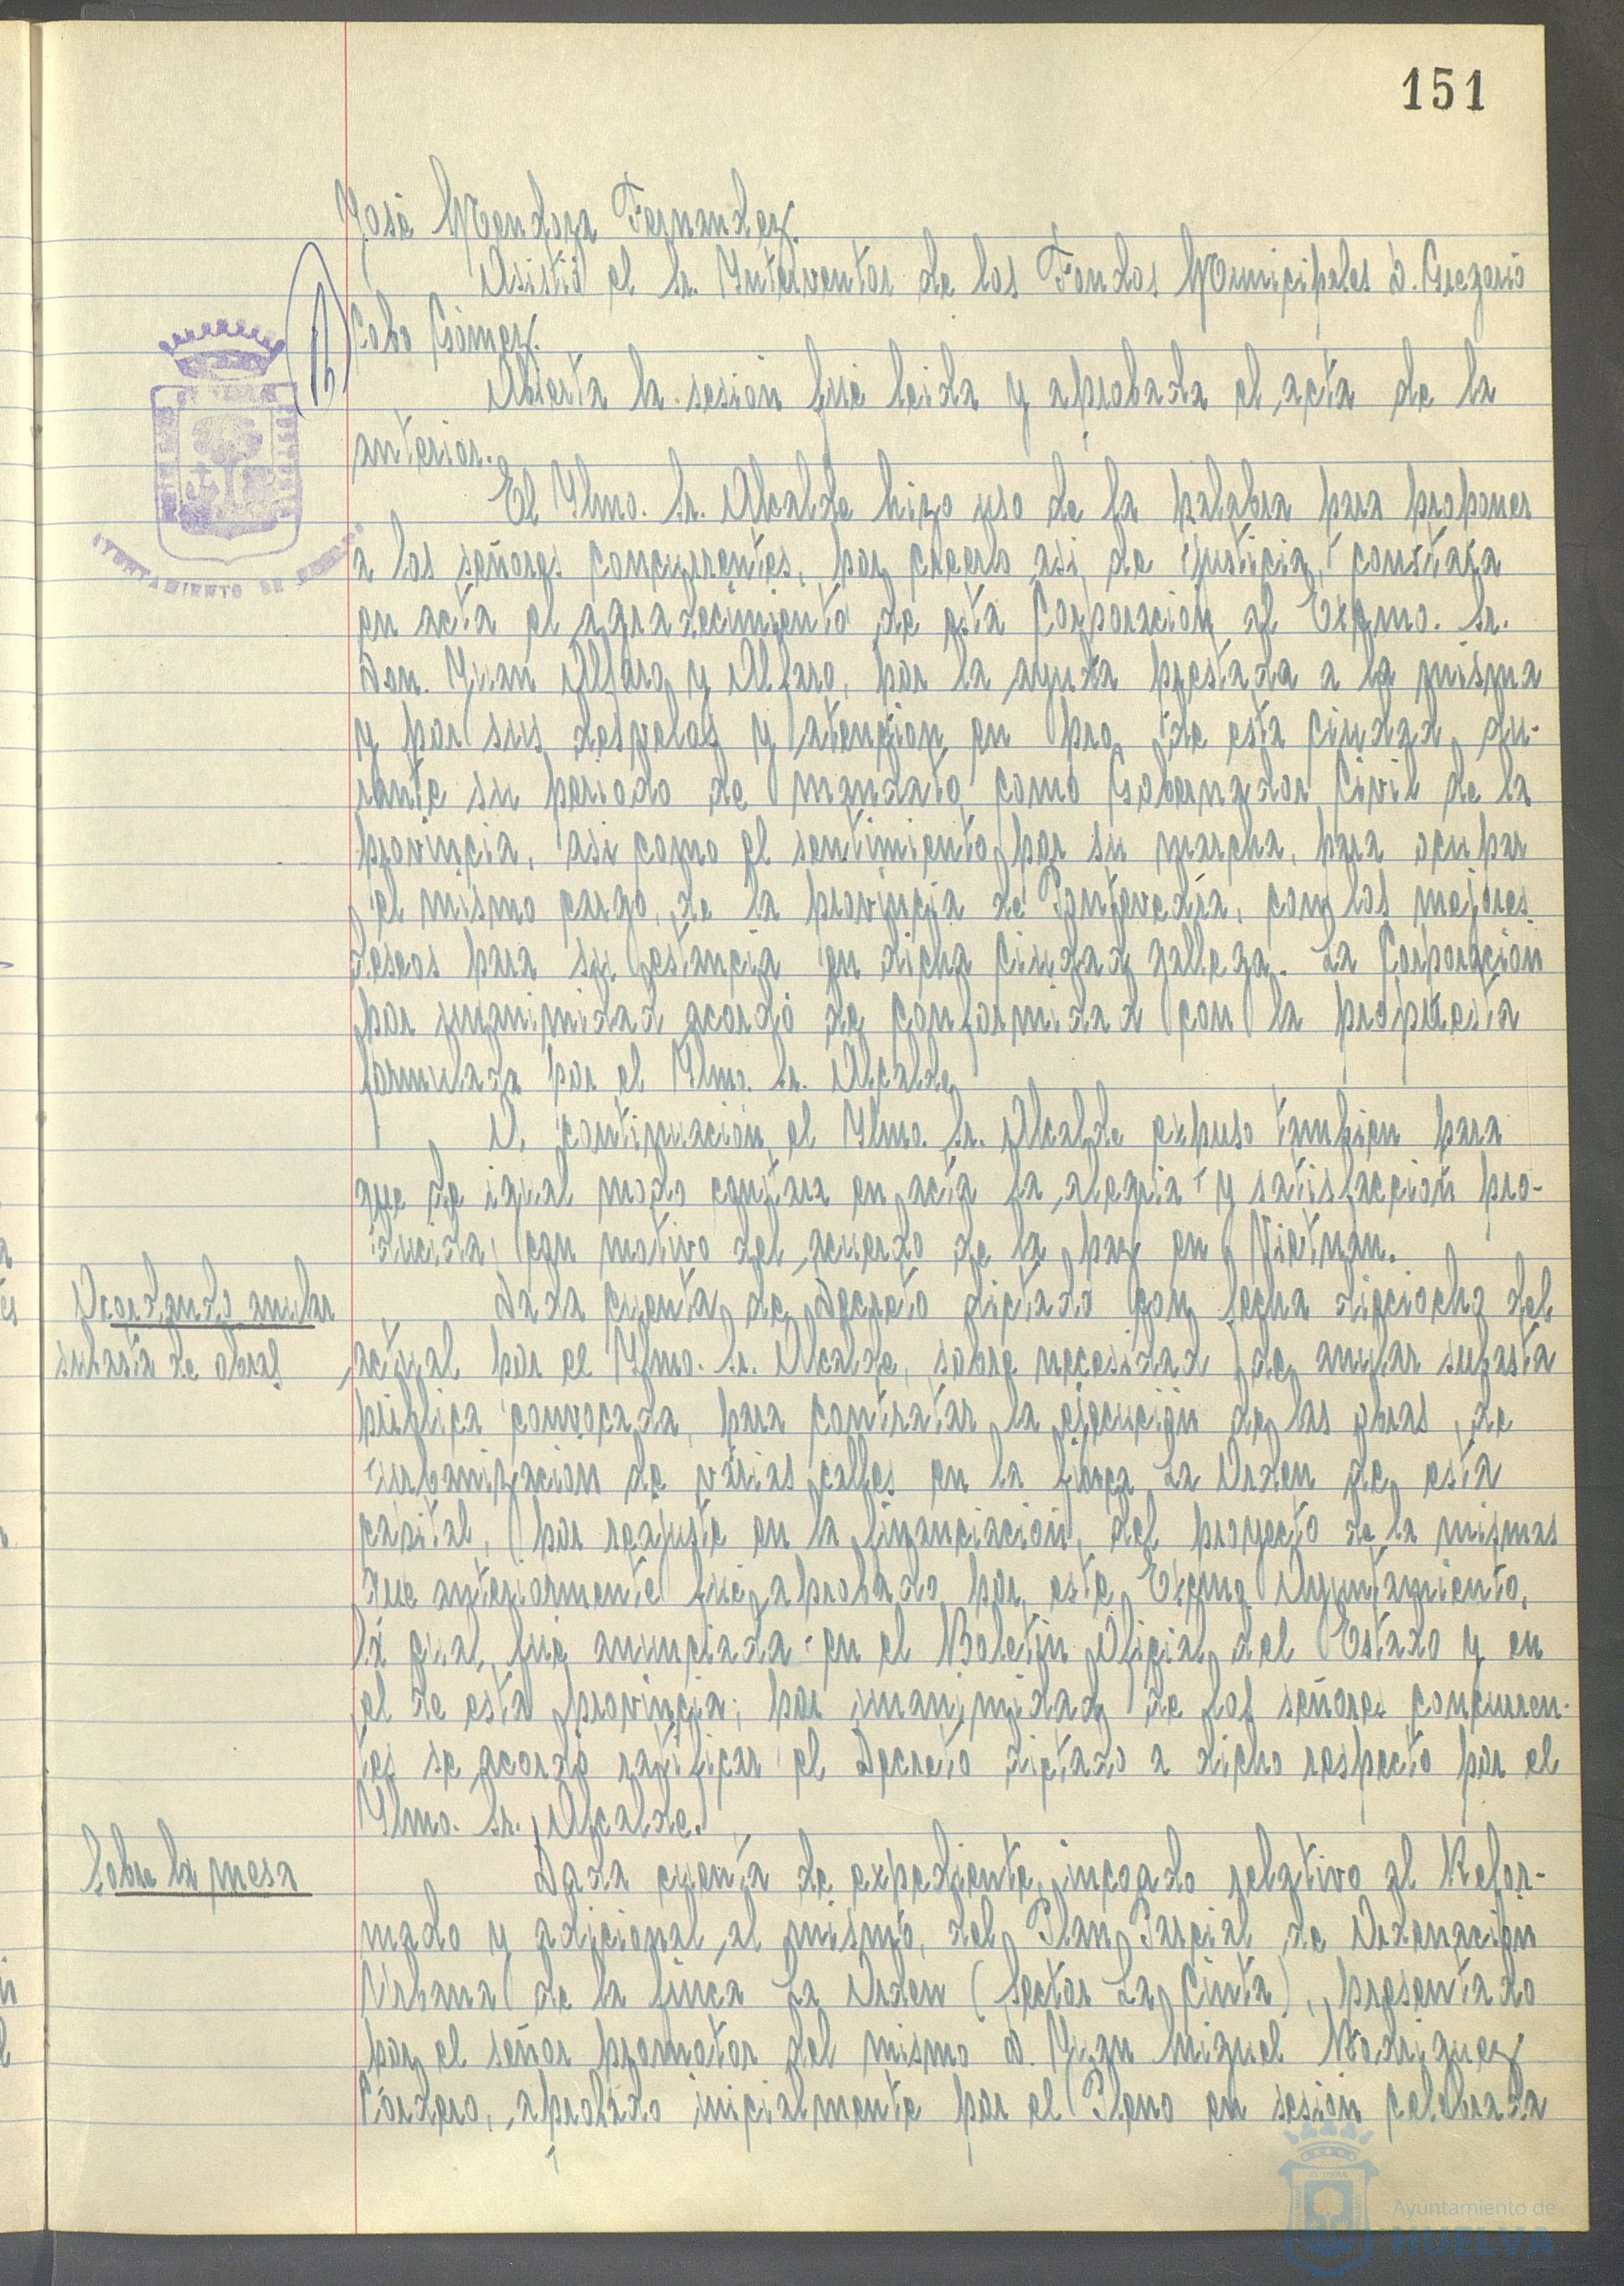 151
José Mendoza Fernandez.
Asistió el Sr. Interventor de los Fondos Municipales D. Gregorio
Cobo Gómez.
Abierta la sesion fué leida y aprobada el acta de la
anterior.
El Ylmo. Sr. Alcalde hizo uso de la palabra para proponer
a los señores concurrentes, por creerlo asi de justicia, constara
en acta el agradecimiento de esta Corporacion al Excmo. Sr.
Don. Juan Alfaro y Alfaro, por la ayuda prestada a la misma
y por sus desvelos y atencion en pro de esta ciudad, du-
rante su periodo de mandato como Gobernador Civil de la
provincia, asi como el sentimiento por su marcha, para ocupar
el mismo cargo, de la provincia de Pontevedra, con los mejores
deseos para su estancia en dicha ciudad gallega. La Corporacion
por unanimidad acordó de conformidad con la propuesta
formulada por el Ylmo. Sr. Alcalde
A continuacion el Ylmo. Sr. Alcalde expuso tambien para
que de igual modo constara en acta la alegria y satisfaccion pro-
ducida, con motivo del acuerdo de la paz en Vietnan.
Acordando anular
subasta de obras
Dada cuenta de Decreto dictado con fecha dieciocho del
actual por el Ylmo. Sr. Alcalde, sobre necesidad de anular subasta
pública convocada, para contratar la ejecución de las obras, de
urbanizacion de varias calles en la finca La Orden de esta
capital, por reajuste en la financiacion, del proyecto de la mismas
que anteriormente fué aprobado por este Excmo Ayuntamiento,
la cual fué anunciada en el Boletin Oficial del Estado y en
el de esta provincia; por unanimidad de los señores concurren-
tes se acordó ratificar el Decreto dictado a dicho respecto por el
Ylmo. Sr. Alcalde.
Sobre la mesa
Dada cuenta de expediente incoado relativo al Refor-
mado y adicional al mismo, del Plan Parcial de Ordenación
Urbana de la finca La Orden (Sector La Cinta), presentado
por el señor promotor del mismo D. Juan Miguel Rodriguez
Córdero, aprobado inicialmente por el Pleno en sesión celebrada
AYUNTAMIENTO DE HUELVA
Ayuntamiento de
HUELVA